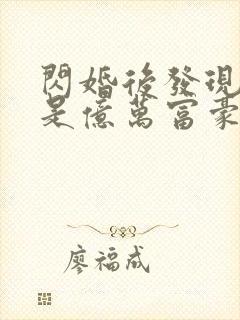 閃婚後發現
是億萬富豪
廖福成